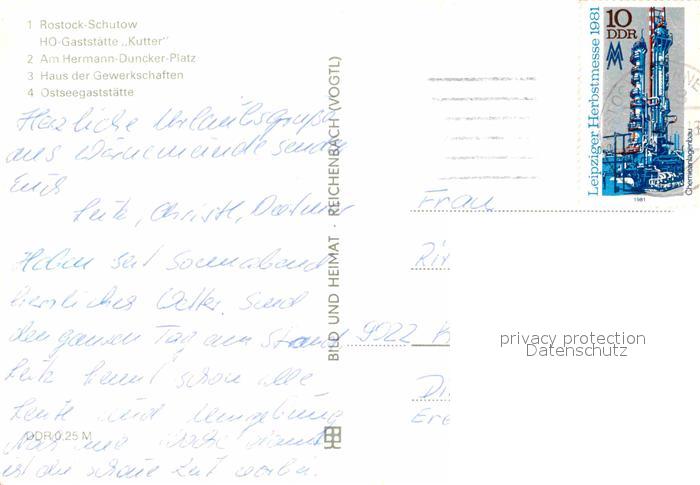 1 Rostock-Schutow
HO-Gaststätte „Kutter"
2 Am Hermann-Duncker-Platz
3 Haus der Gewerkschaften
4 Ostseegaststätte
Herzliche Urlaubsgrüße
aus Warnemünde senden
Euch
Christl,
Haben seit Sonnabend
herrliches Wetter. Sind
den ganzen Tag am Strand
kennt schon alle
Leute und Umgebung
Woche dann
ist die schöne Zeit vorbei.
DDR 0,25 M
BILD UND HEIMAT · REICHENBACH (VOGTL)
Leipziger Herbstmesse 1981
10
DDR
Chemieanlagenbau
1981
Frau
9922 K
privacy protection
Datenschutz